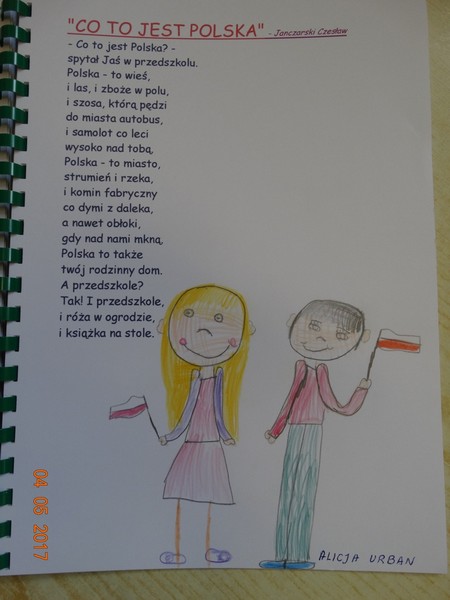 "CO TO JEST POLSKA" - Janczarski Czesław
- Co to jest Polska? -
spytał Jaś w przedszkolu.
Polska - to wieś,
i las, i zboże w polu,
i szosa, którą pędzi
do miasta autobus,
i samolot co leci
wysoko nad tobą,
Polska - to miasto,
strumień i rzeka,
i komin fabryczny
co dymi z daleka,
a nawet obłoki,
gdy nad nami mkną,
Polska to także
twój rodzinny dom.
A przedszkole?
Tak! I przedszkole,
i róża w ogrodzie,
i książka na stole.
ALICJA URBAN
04 05 2017